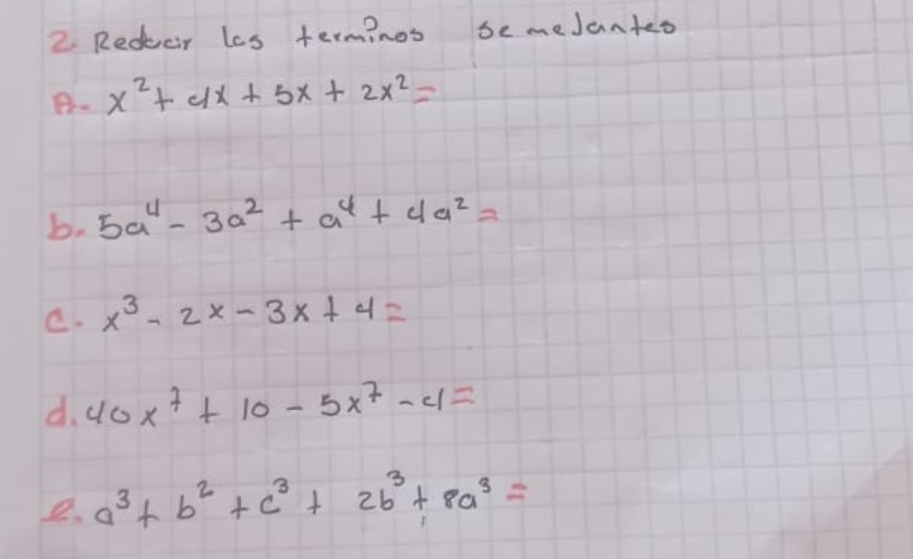 2. Reducir los terminos semejantes
A. x² + 4x + 5x + 2x² =
b. 5a⁴ - 3a² + a⁴ + 4a² =
c. x³ - 2x - 3x + 4 =
d. 40x⁷ + 10 - 5x⁷ - 4 =
e. a³ + b² + c³ + 2b³ + 8a³ =